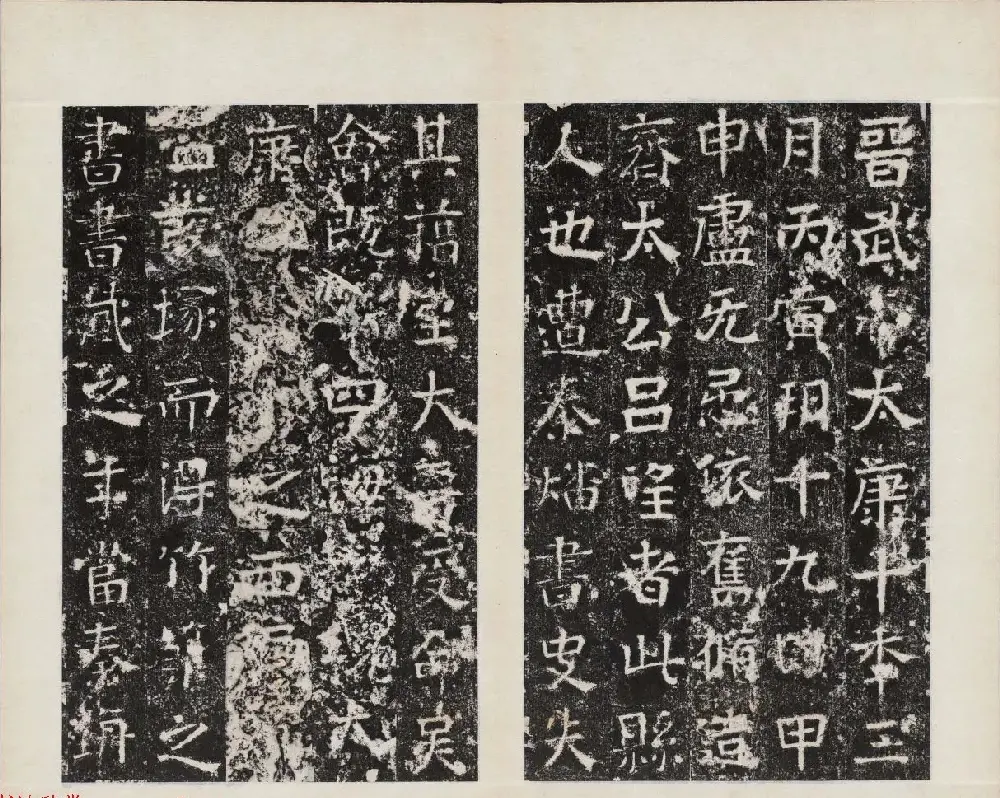 晉武太康十年三
月丙寅朔十九日甲
申盧无忌依舊脩造
齊太公呂望者此縣
人也遭秦燔書史失
其籍至大晉受命吳
會既四海太
康之西偏
盜發塚而得竹策之
書書藏之年當秦坑